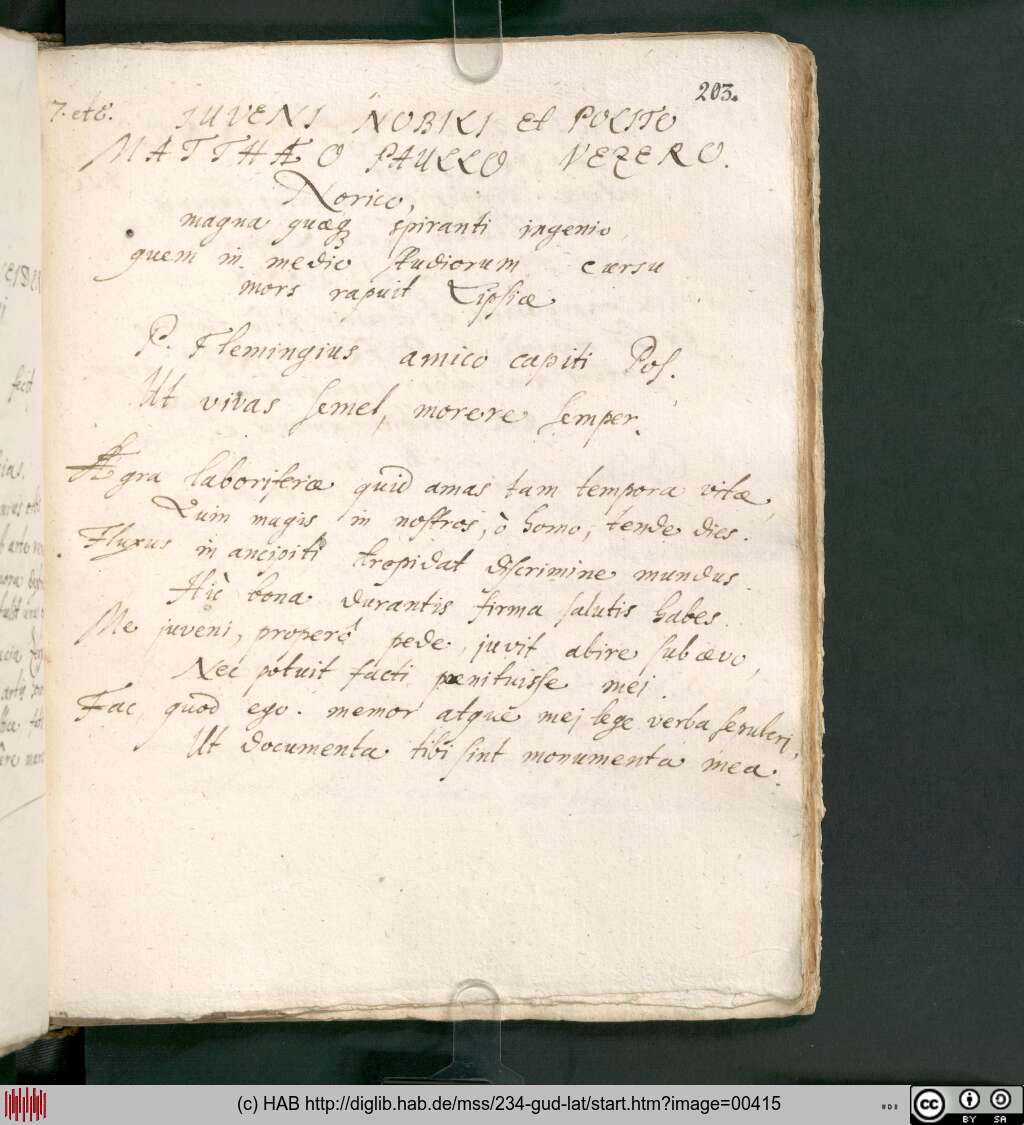 203.
7. et 8. IUVENI NOBILI et POLITO
MATTHÆO PAULLO VEZERO.
Norico,
magna quæq; spiranti ingenio,
quem in medio studiorum cursu
mors rapuit Lipsiæ
P. Flemingius amico capiti Pos.
Ut vivas semel, morere semper.
Ægra laboriferæ quid amas tam tempora vitæ,
Quin magis in nostros, ô homo, tende dies.
Fluxus in ancipiti trepidat discrimine mundus.
Hîc bona durantis firma salutis habes.
Me juveni, properô pede, juvit abire sub ævo,
Nec potuit facti pœnituisse mei.
Fac, quod ego. memor atque mei lege verba sepulcri,
Ut documenta tibi sint monumenta mea.
fecit
(c) HAB http://diglib.hab.de/mss/234-gud-lat/start.htm?image=00415
WDB
cc BY SA